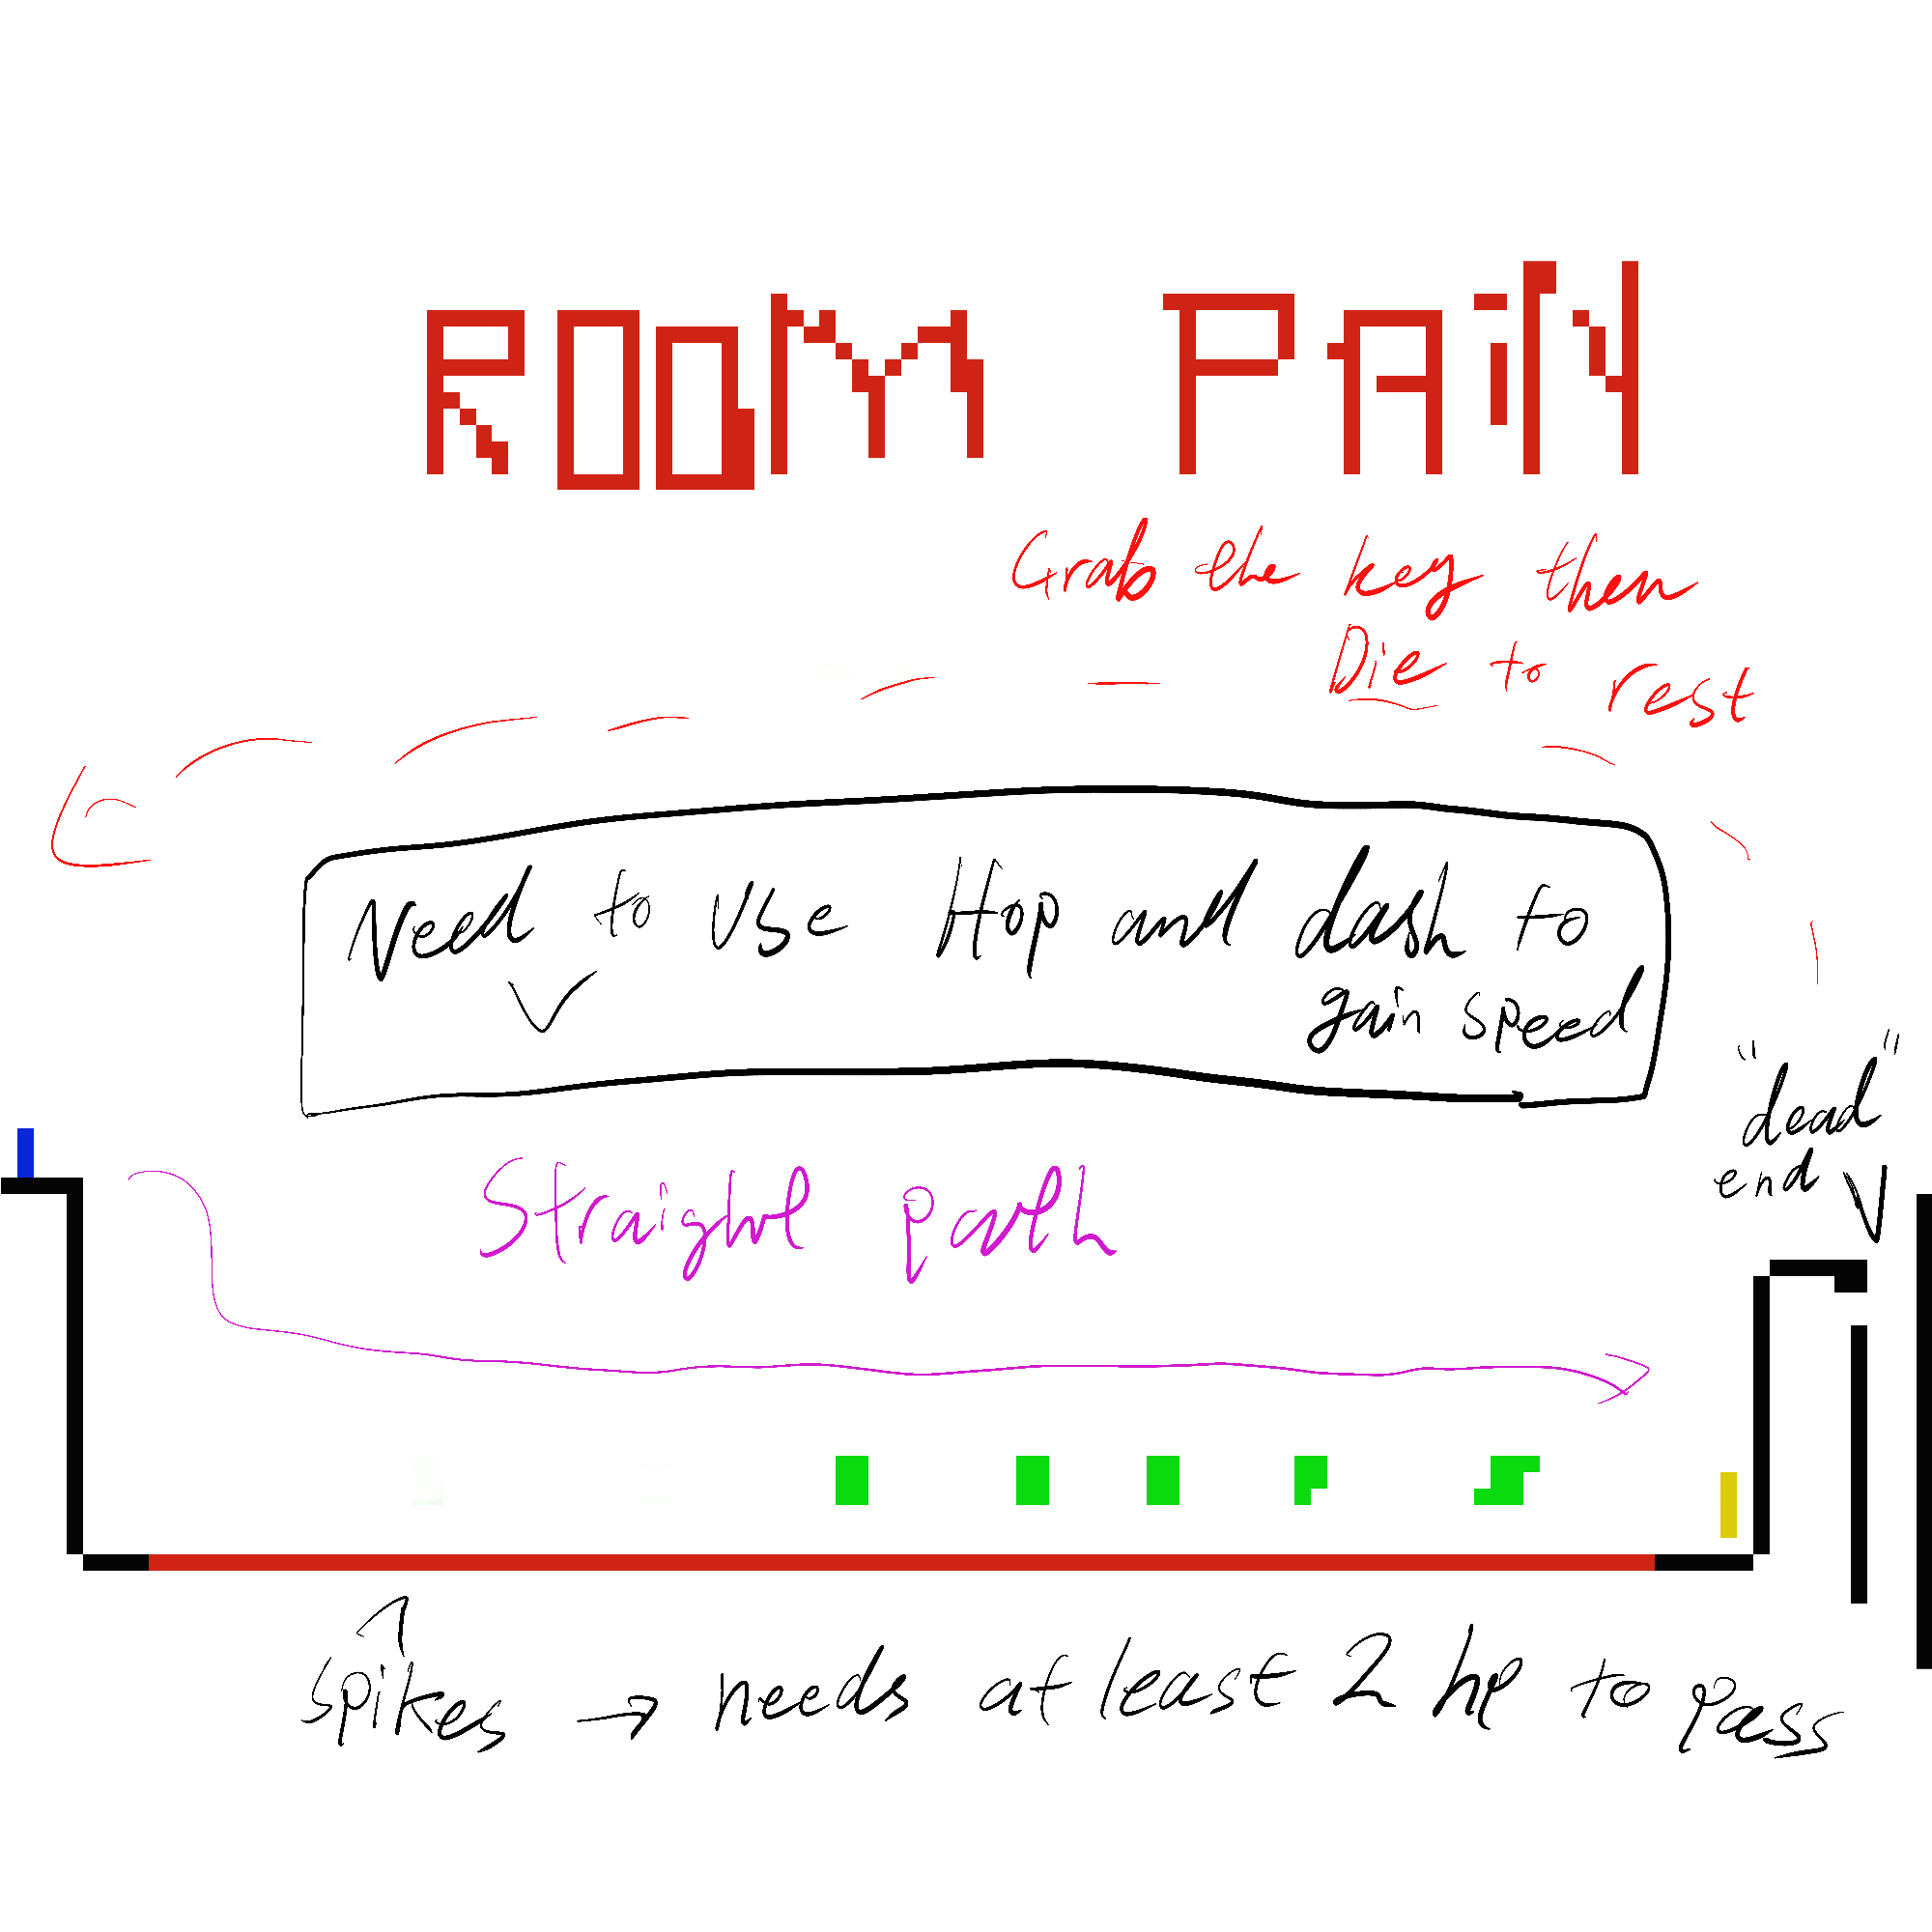 ROOM PAiN
Grab the key then
Die to rest
Need to use Hop and dash to
gain speed
"dead"
end
Straight path
spikes → needs at least 2 hp to pass